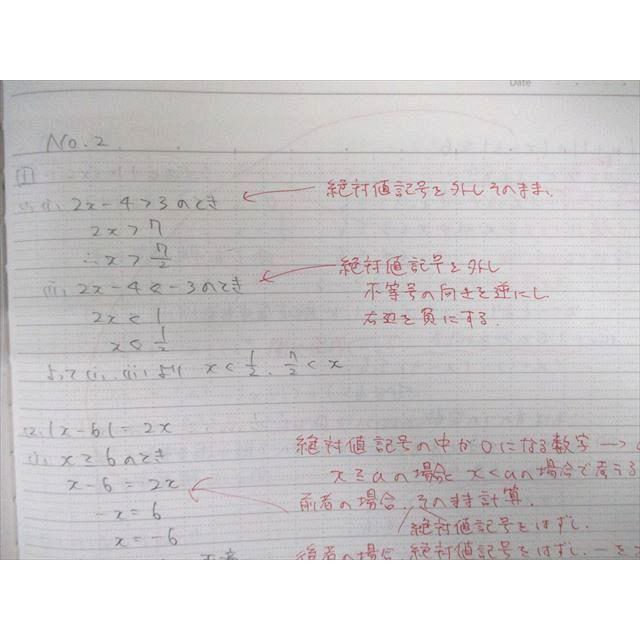 Date
No. 2
1
(1) (i) 2x-4>3のとき
絶対値記号を外しそのまま、
2x>7
∴x>7/2
絶対値記号を外し
(ii) 2x-4<-3のとき
不等号の向きを逆にし
2x<1
右辺を負にする.
x<1/2
よって(i),(ii)より x<1/2, 7/2<x
(2) |x-6|=2x
絶対値記号の中が0になる数字→
(i) x≧6のとき
x≧aの場合とx<aの場合で考える
x-6=2x
前者の場合、そのまま計算.
-x=6
絶対値記号をはずし.
x=-6
後者の場合、絶対値記号をはずし、-を